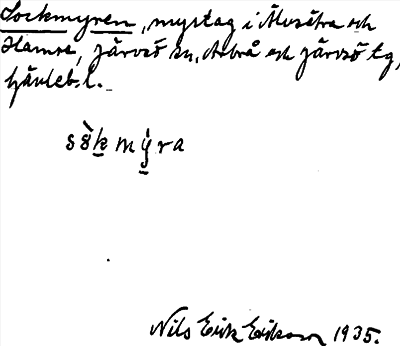 Sockmyren, myrtag i Älvsätra och
Hamre, Järvsö sn, Arbrå och Järvsö tg,
Gävleb. l.
sòkmýra
Nils Erik Erikson 1935.